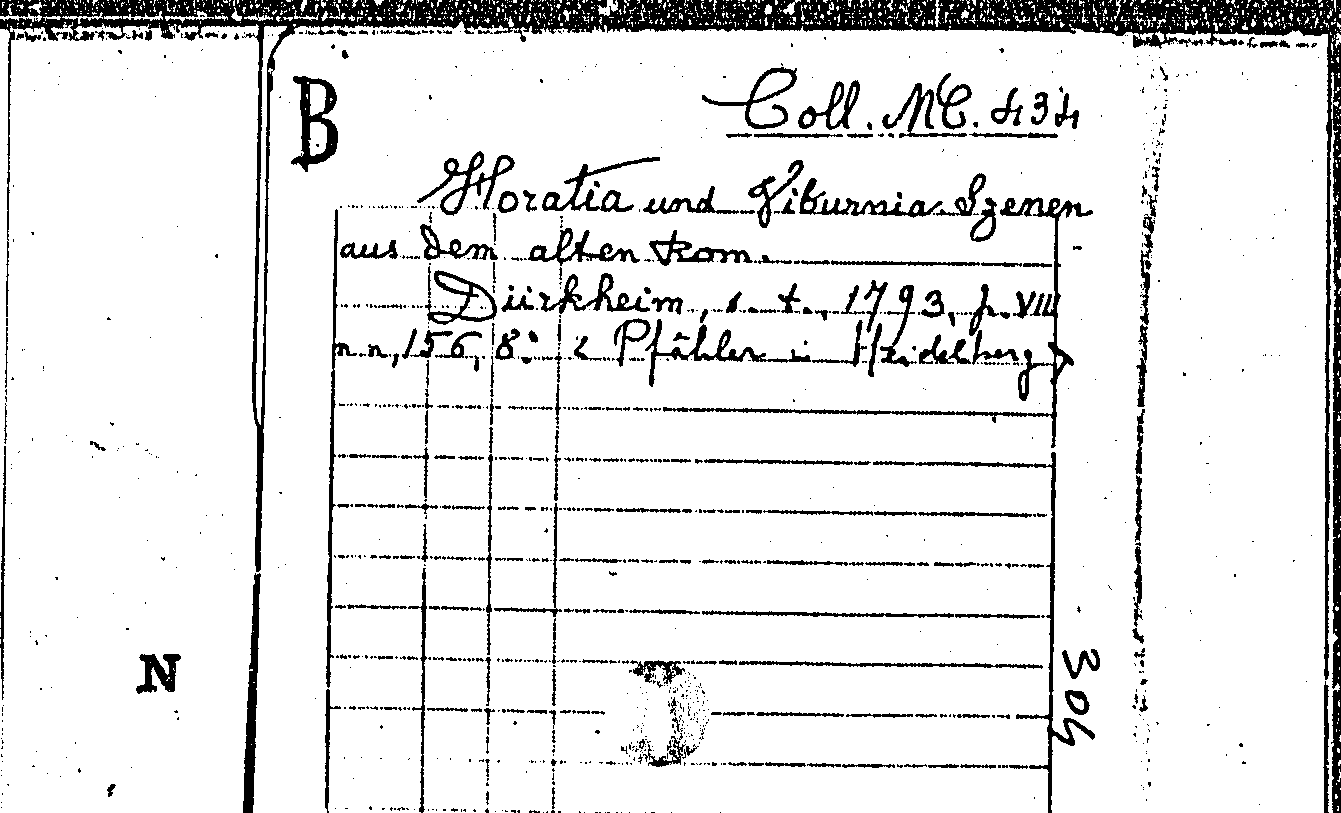 B
Coll. MC. 434
Horatia und Viburnia. Szenen
aus dem alten Rom.
Dürkheim, s. t., 1793, p. VIII
n n, 156, 8: < Pfähler i Heidelberg >
N
304